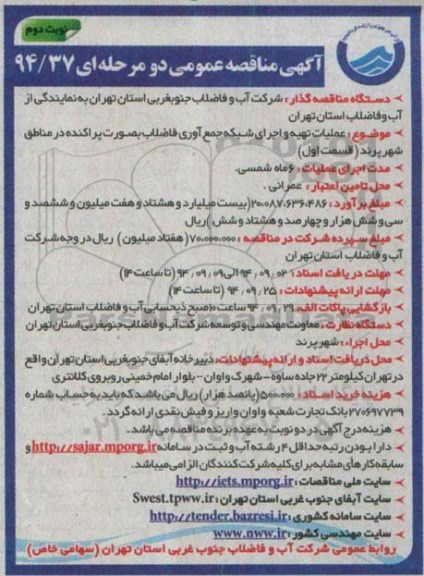 نوبت دوم
آگهی مناقصه عمومی دو مرحله ای ۹۴/۳۷
دستگاه مناقصه گذار : شرکت آب و فاضلاب جنوبغربی استان تهران به نمایندگی از
آب و فاضلاب استان تهران
موضوع : عملیات تهیه و اجرای شبکه جمع آوری فاضلاب بصورت پراکنده در مناطق
شهر پرند ( قسمت اول)
مدت اجرای عملیات : ۶ ماه شمسی.
محل تامین اعتبار : عمرانی .
مبلغ برآورد : ۲۰،۰۸۷،۶۳۶،۴۸۶(بیست میلیارد و هشتاد و هفت میلیون و ششصد و
سی و شش هزار و چهارصد و هشتاد و شش )ریال
مبلغ سپرده شرکت در مناقصه : ۷۰،۰۰۰،۰۰۰( هفتاد میلیون ) ریال در وجه شرکت
آب و فاضلاب استان تهران
مهلت دریافت اسناد : ۹۴/۰۹/۰۲ الی ۹۴/۰۹/۰۹ (تا ساعت ۱۴)
مهلت ارائه پیشنهادات : ۹۴/۰۹/۲۵ (تا ساعت ۱۴)
بازگشایی پاکات الف ساعت ۱۰صبح ذیحسابی آب و فاضلاب استان تهران
دستگاه نظارت : معاونت مهندسی و توسعه شرکت آب و فاضلاب جنوبغربی استان تهران
محل اجراء : شهر پرند
محل دریافت اسناد و ارائه پیشنهادات: دبیرخانه آبفای جنوبغربی استان تهران واقع
در تهران کیلومتر ۲۳ جاده ساوه - شهرک واوان - بلوار امام خمینی روبروی کلانتری
هزینه خرید اسناد : ۵۰۰،۰۰۰(پانصد هزار) ریال می باشد که باید به حساب شماره
۲۷۰۶۹۷۷۳۹ بانک تجارت شعبه واوان واریز و فیش نقدی ارائه گردد .
هزینه درج آگهی در دو نوبت به عهده برنده مناقصه می باشد .
دارا بودن رتبه حداقل ۴ رشته آب و ثبت در سامانه http://sajar.mporg.ir و
سابقه کار های مشابه برای کلیه شرکت کنندگان الزامی میباشد.
سایت ملی مناقصات : http://iets.mporg.ir
سایت آبفای جنوب غربی استان تهران : Swest.tpww.ir
سایت سامانه کشوری : http://tender.bazresi.ir
سایت مهندسی کشور : www.nww.ir
روابط عمومی شرکت آب و فاضلاب جنوب غربی استان تهران (سهامی خاص)